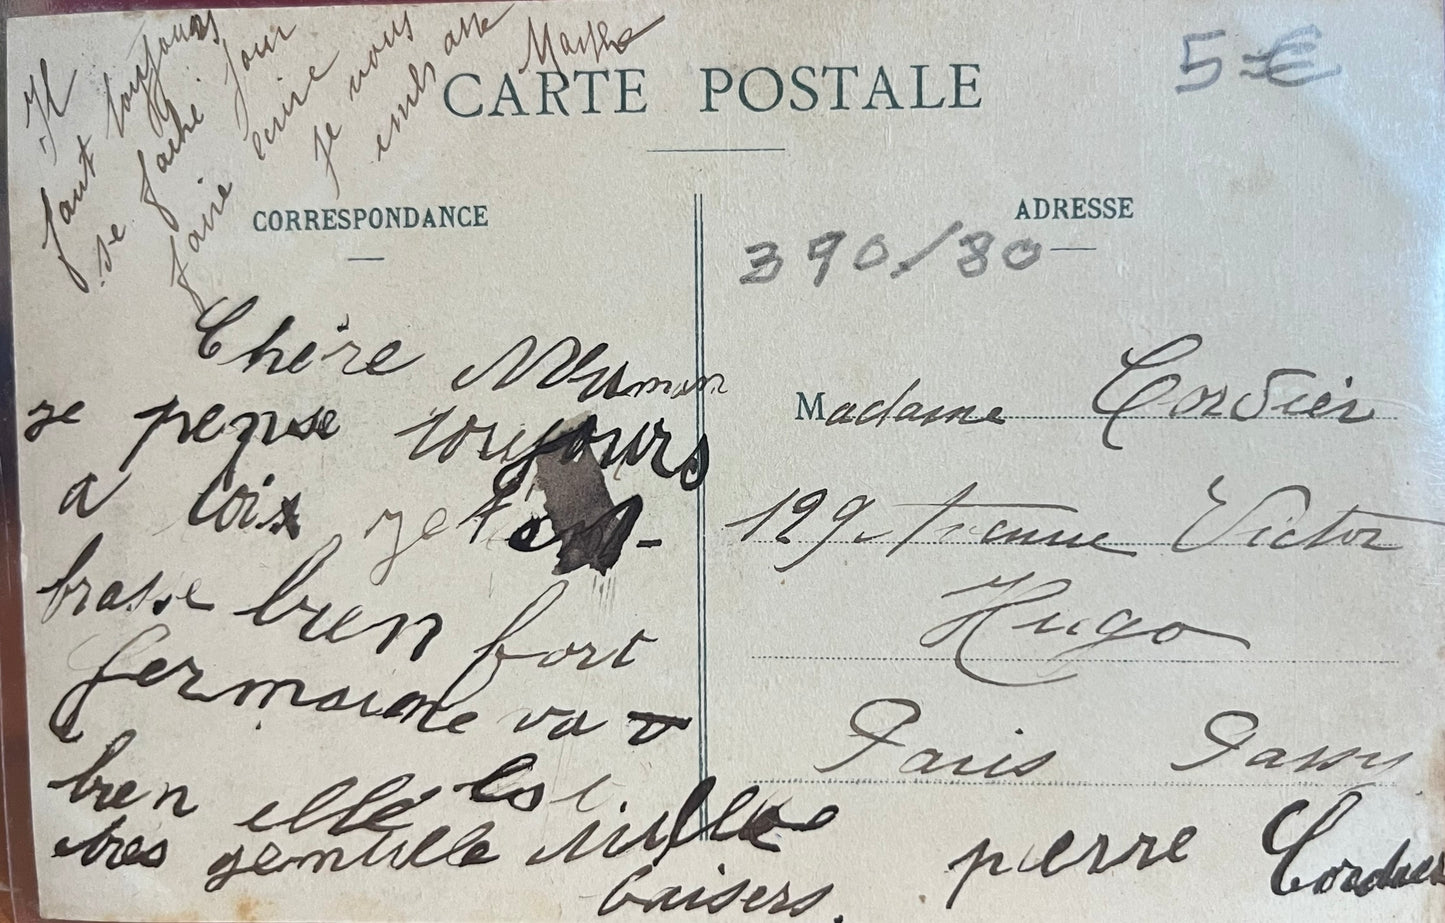 Il
faut toujours
se faché pour
faire écrire
je vous
embrasse
Marthe
CARTE POSTALE
5 €
CORRESPONDANCE
ADRESSE
390/80
Chère Meuman
je pense toujours
a toix je t'em-
brasse bien fort
germaine va
bien elle est
très gentille mille
baisers.
Madame Cordier
129 Avenue Victor
Hugo
Paris Passy
pierre Cordier